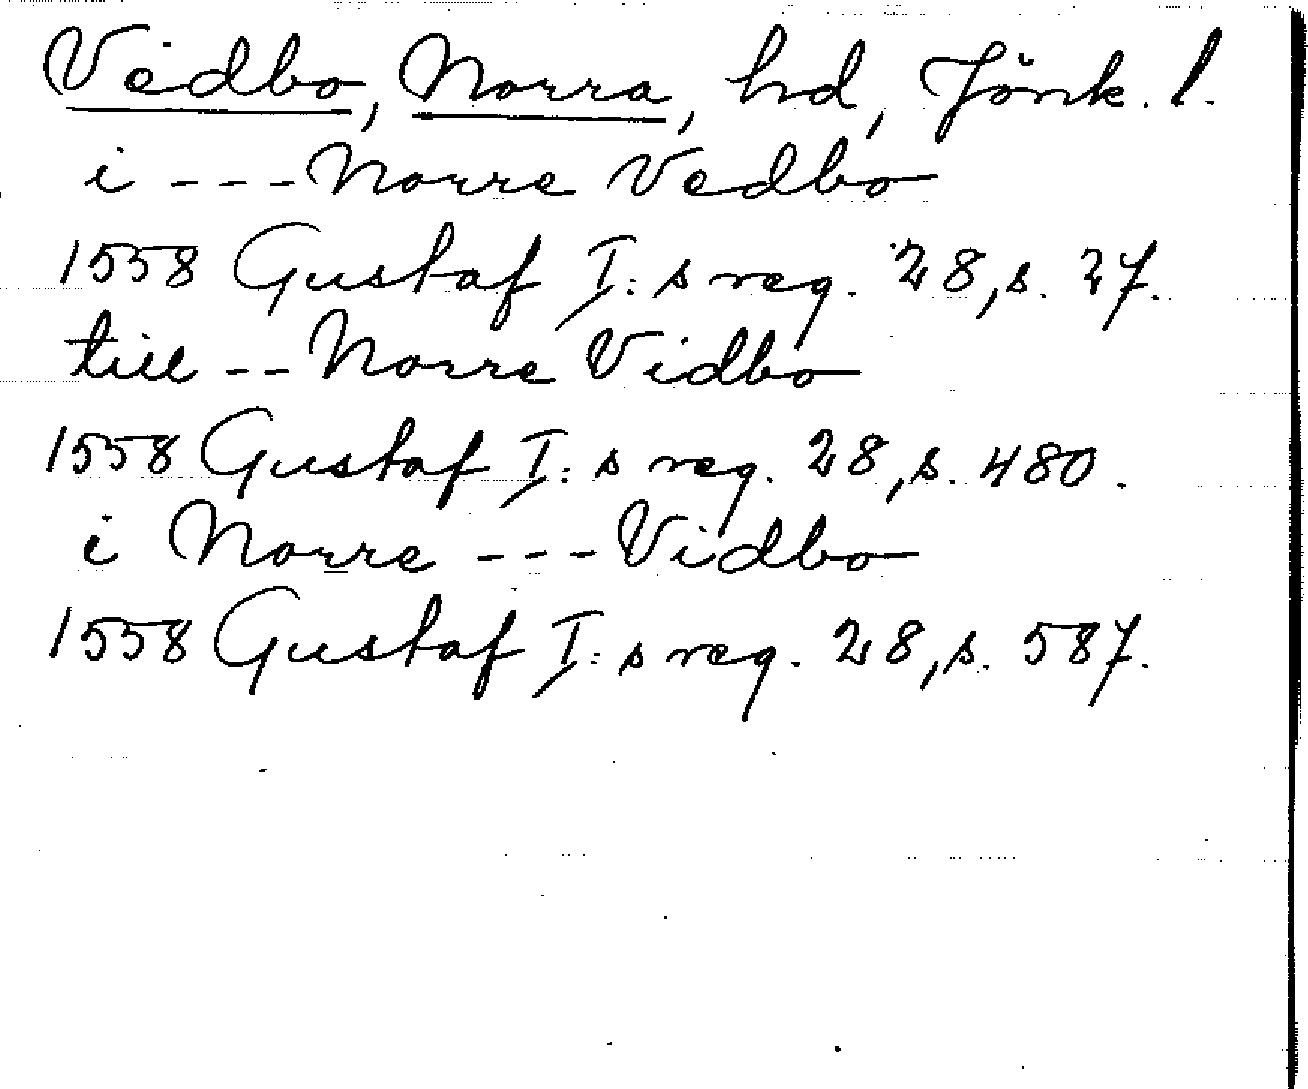 Vedbo, Norra, hd, Jönk. l.
i - - - Norre Vedbo
1558 Gustaf I:s reg. 28, s. 27.
till - - Norre Vidbo
1558 Gustaf I:s reg. 28, s. 480.
i Norre - - - Vidbo
1558 Gustaf I:s reg. 28, s. 587.